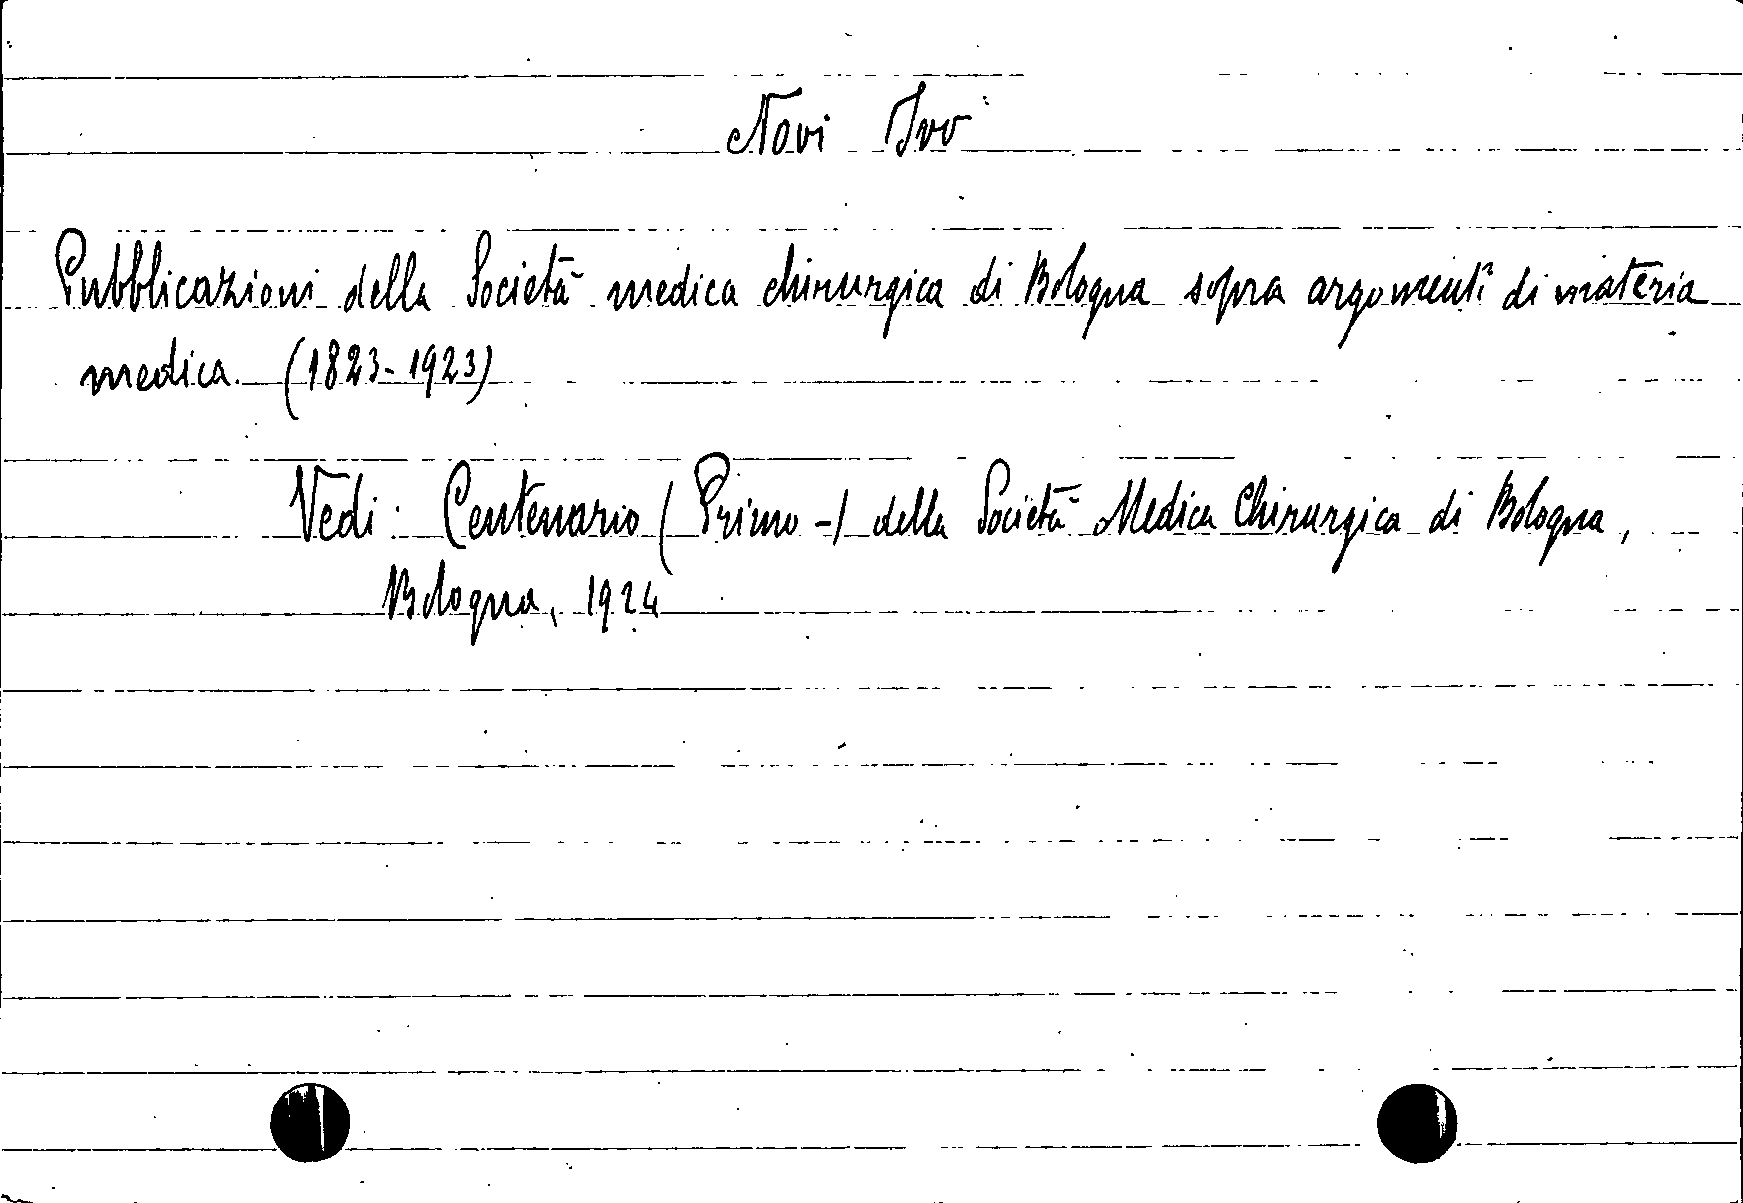 Novi Ivo
Pubblicazioni della Società medica chirurgica di Bologna sopra argomenti di materia
medica. (1823-1923)
Vedi: Centenario (Primo -) della Società Medica Chirurgica di Bologna,
Bologna, 1924